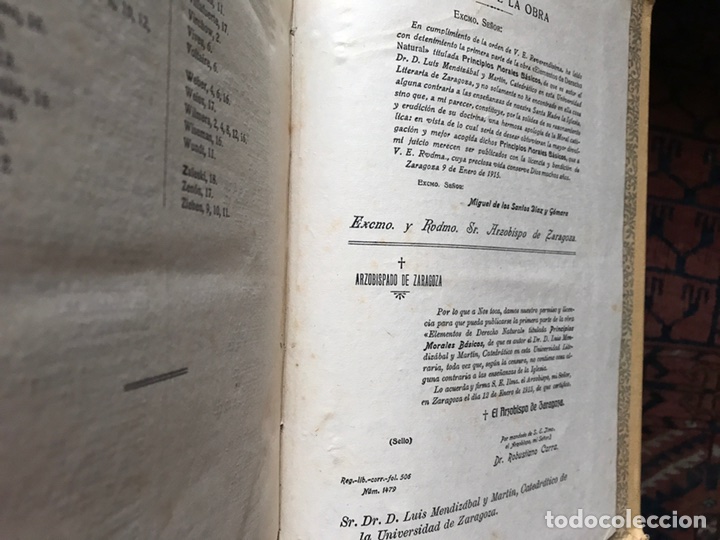 10, 12,
Virchow, 2.
Vives, 6.
Voltaire, 6.
Weber, 4, 6, 16.
Weiss, 17.
Wilmers, 2, 4, 8, 12, 16.
Wiseman, 16.
Wundt, 11.
Zaleski, 18.
Zenón, 17.
Ziehen, 9, 10, 11.
LA OBRA
EXCMO. SEÑOR:
En cumplimiento de la orden de V. E. Reverendísima, he leído
con detenimiento la primera parte de la obra «Elementos de Derecho
Natural» titulada Principios Morales Básicos, de que es autor el
Dr. D. Luis Mendizábal y Martín, Catedrático en esta Universidad
Literaria de Zaragoza, y no solamente no he encontrado en ella cosa
alguna contraria a las enseñanzas de nuestra Santa Madre la Iglesia,
sino que, a mi parecer, constituye, por la solidez de su razonamiento
y erudición de su doctrina, una hermosa apología de la Moral cató-
lica: en vista de lo cual sería de desear obtuvieran la mayor divul-
gación y mejor acogida dichos Principios Morales Básicos, que a
mi juicio merecen ser publicados con la licencia y bendición de
V. E. Rvdma., cuya preciosa vida conserve Dios muchos años.
Zaragoza 9 de Enero de 1915.
EXCMO. SEÑOR:
Miguel de los Santos Díaz y Gómara
Excmo. y Rvdmo. Sr. Arzobispo de Zaragoza.
ARZOBISPADO DE ZARAGOZA
Por lo que a Nos toca, damos nuestro permiso y licen-
cia para que pueda publicarse la primera parte de la obra
«Elementos de Derecho Natural» titulada Principios
Morales Básicos, de que es autor el Dr. D. Luis Men-
dizábal y Martín, Catedrático en esta Universidad Lite-
raria, toda vez que, según la censura, no contiene cosa al-
guna contraria a las enseñanzas de la Iglesia.
Lo acuerda y firma S. E. Ilma. el Arzobispo, mi Señor,
en Zaragoza el día 12 de Enero de 1915, de que certifico.
† El Arzobispo de Zaragoza.
Por mandado de S. E. Ilma.
el Arzobispo, mi Señor:
Dr. Robustiano Carra.
(Sello)
Reg.-lib.-corr.-fol. 506
Núm. 1479
Sr. Dr. D. Luis Mendizábal y Martín, Catedrático de
la Universidad de Zaragoza.
todocoleccion
todocoleccion.net